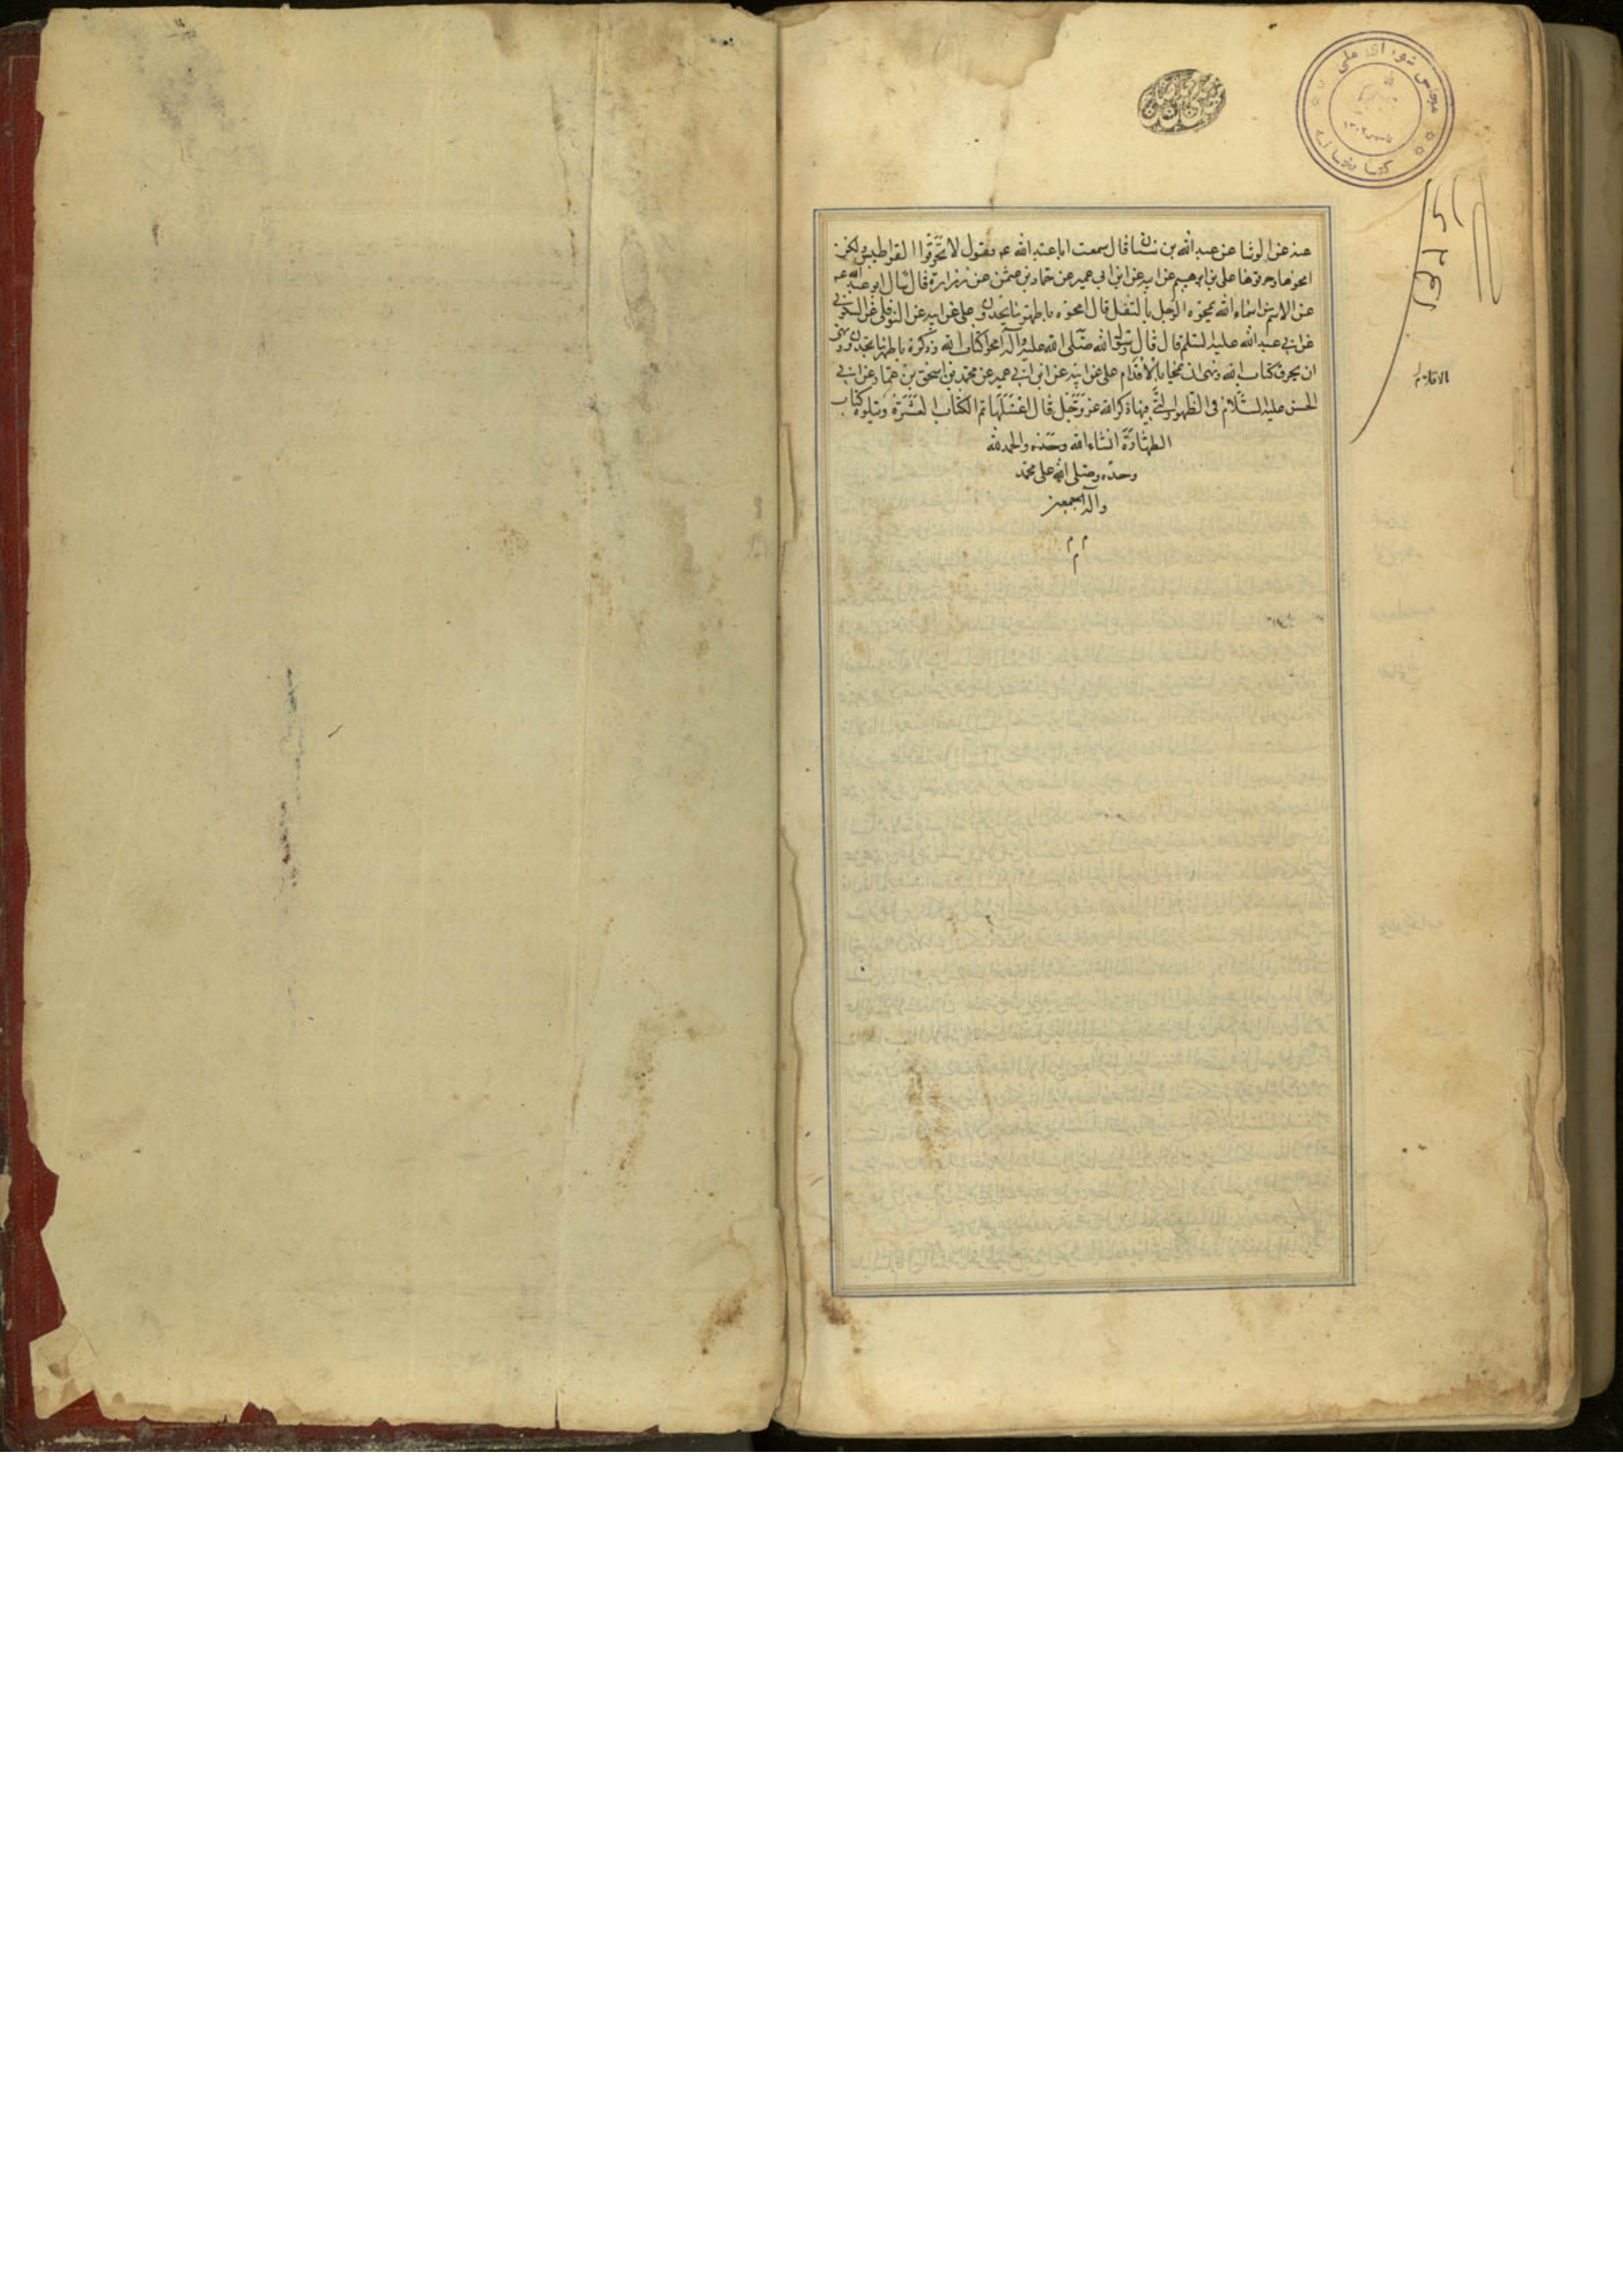 مجلس شورای ملی
کتابخانه
عنه عن الوشا عن عبد الله بن سنان قال سمعت ابا عبد الله عم يقول لا تحرقوا القراطيس ولكن
امحوها وحرقوها على بن ابرهيم عن ابيه عن ابن ابي عمير عن حماد بن عثمن عن زرارة قال سال ابو عبد الله عم
عن الاسم من اسماء الله يمحوه الرجل بالتفل قال امحوه باطهر ما تجدون على عن ابيه عن النوفلى عن السكونى
عن ابي عبد الله عليه السلم قال قال رسول الله صلى الله عليه وآله امحوا كتاب الله وذكره باطهر ما تجدون ونهى
ان يحرق كتاب الله ونهى ان يمحى بالاقدام على عن ابيه عن ابن ابي عمير عن محمد بن اسحق بن عمار عن ابي
الحسن عليه السلام في الظهور التي فيها ذكر الله عز وجل قال اغسلها تم الكتاب العشرة ويتلوه كتاب
الطهارة انشاء الله وحده والحمد لله
وحده وصلى الله على محمد
وآله اجمعين
م م
م
بالاقلام